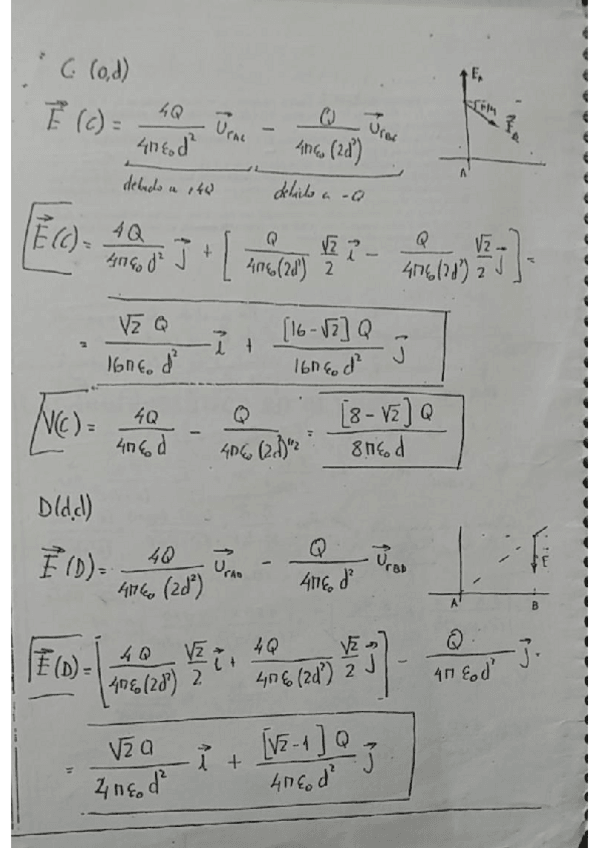 C (0,d)
E⃗(C) = 4Q/(4πε₀d²) U⃗rAC − Q/(4πε₀(2d²)) U⃗rBC
debido a +4Q debido a -Q
E⃗(C) = 4Q/(4πε₀d²) j⃗ + [Q/(4πε₀(2d²)) √2/2 i⃗ − Q/(4πε₀(2d²)) √2/2 j⃗] =
= √2 Q/(16πε₀d²) i⃗ + [16-√2] Q/(16πε₀d²) j⃗
V(C) = 4Q/(4πε₀d) − Q/(4πε₀(2d²)^1/2) = [8-√2] Q/(8πε₀d)
D(d,d)
E⃗(D) = 4Q/(4πε₀(2d²)) U⃗rAD − Q/(4πε₀d²) U⃗rBD
A B
E⃗(D) = [4Q/(4πε₀(2d²)) √2/2 i⃗ + 4Q/(4πε₀(2d²)) √2/2 j⃗] − Q/(4πε₀d²) j⃗.
= √2 Q/(4πε₀d²) i⃗ + [√2-1] Q/(4πε₀d²) j⃗